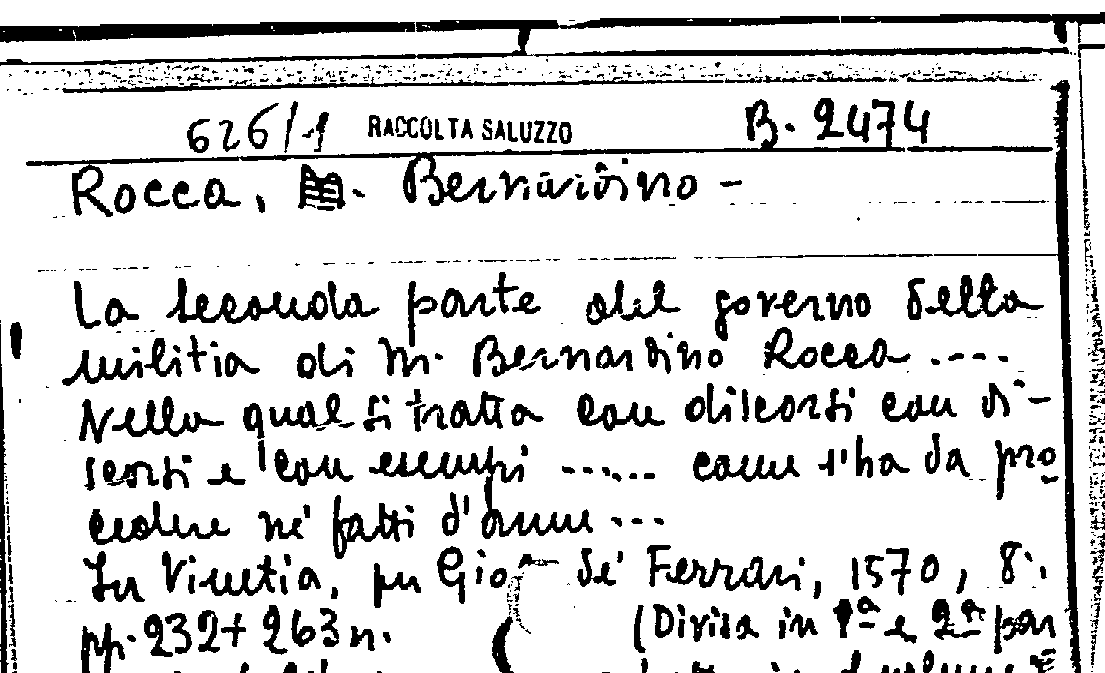 626/1 RACCOLTA SALUZZO B. 2474
Rocca, M. Bernardino -
La seconda parte del governo della
militia di M. Bernardino Rocca ....
Nella qual si tratta con discorsi con di-
scorsi e con esempi ...... come s'ha da pro
cedere ne' fatti d'arme ...
In Vinetia, per Gio. de' Ferrari, 1570, 8°.
pp. 232 + 263 n. (Divisa in 1ª e 2ª par